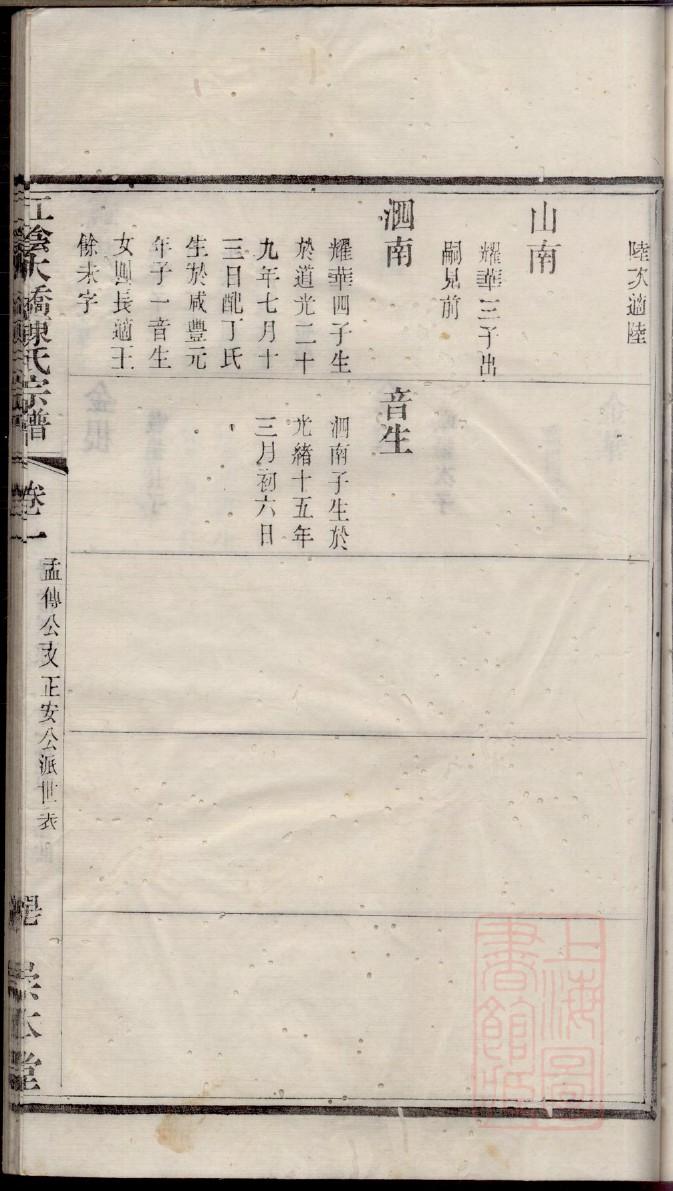 陸次適陸
山南
耀華三子出
嗣見前
泗南
耀華四子生
於道光二十
九年七月十
三日配丁氏
生於咸豐元
年子一音生
女四長適王
餘未字
音生
泗南子生於
光緒十五年
三月初六日
江陰大橋陳氏宗譜
卷一
孟傳公支正安公派世表
崇本堂
上海圖書館藏